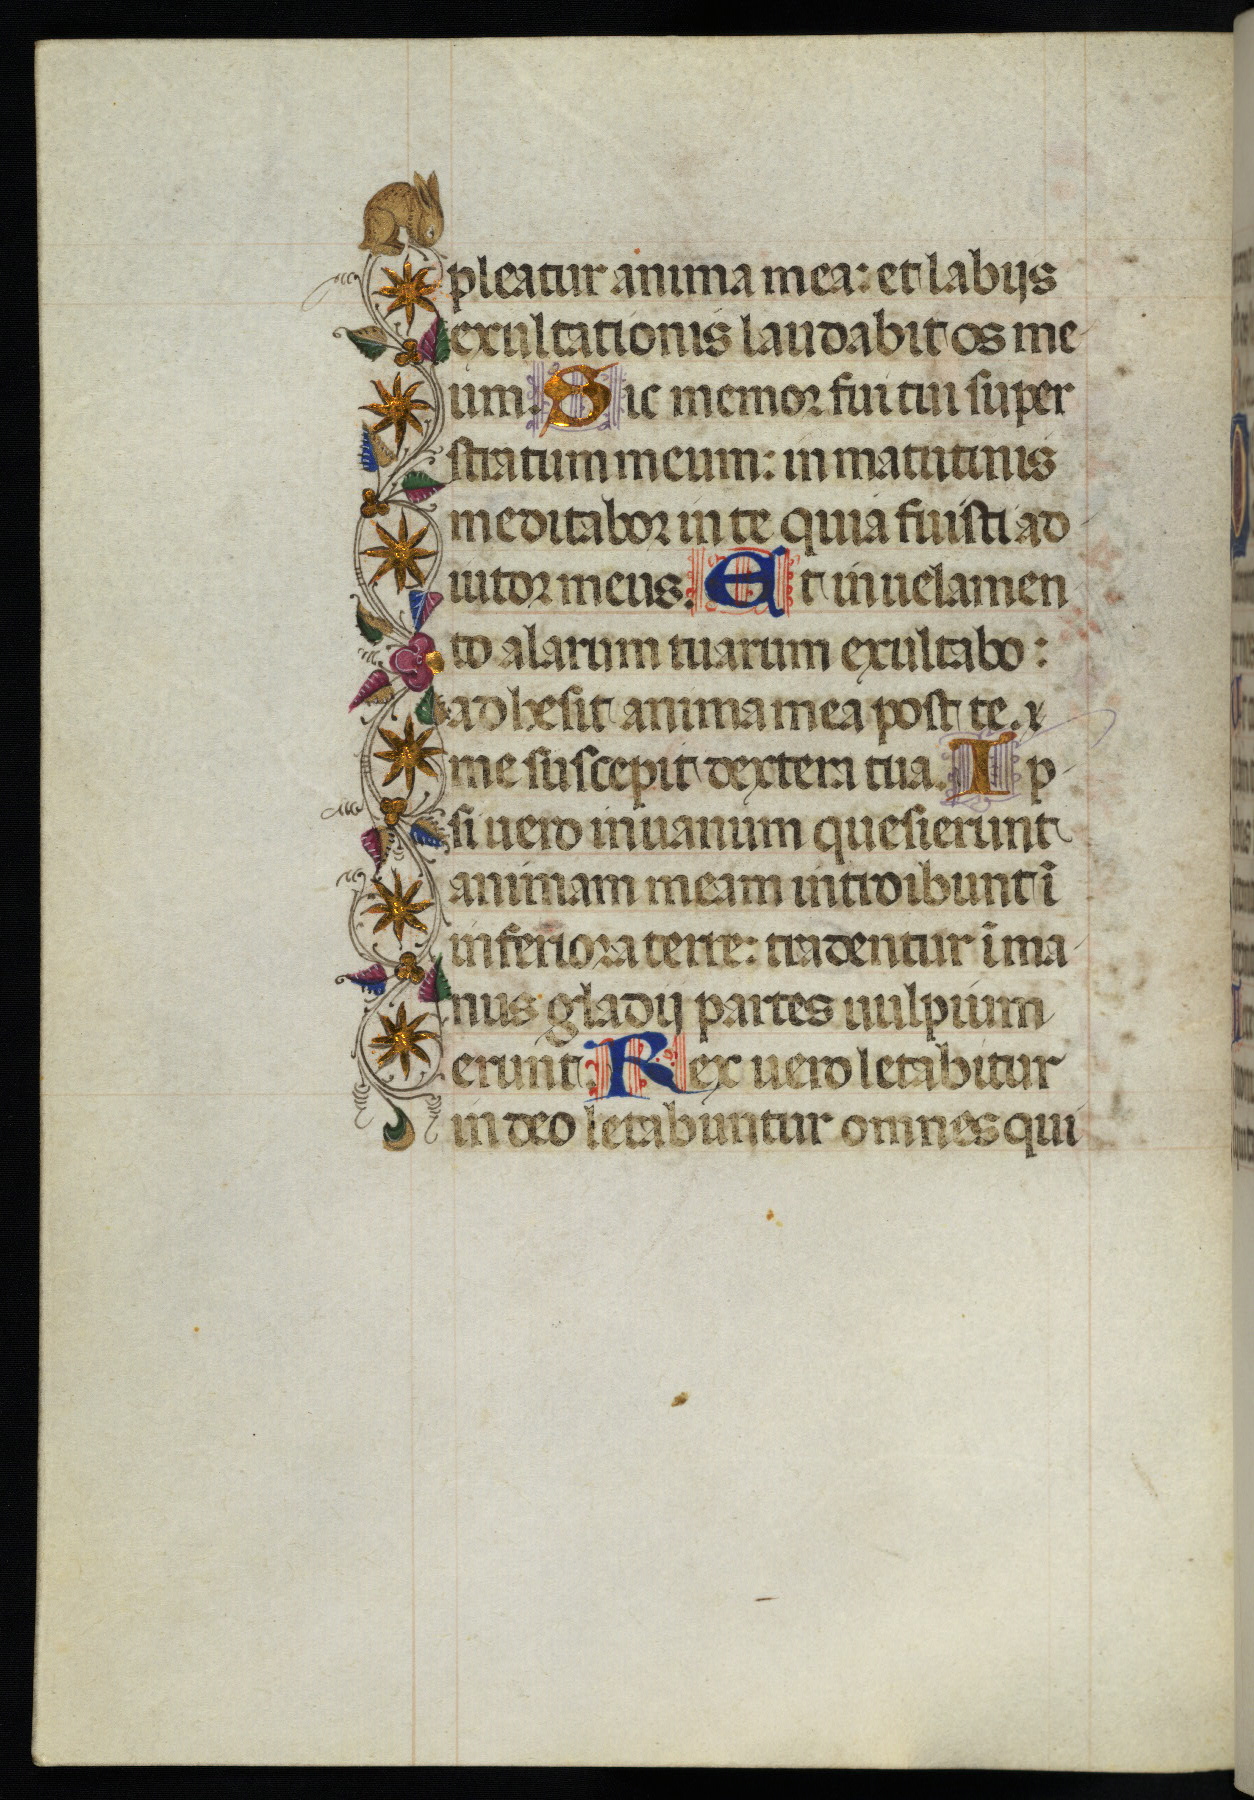 pleatur anima mea: et labijs
exultationis laudabit os me
um. Sic memor fui tui super
stratum meum: in matutinis
meditabor in te quia fuisti ad
iutor meus. Et in uelamen
to alarum tuarum exultabo:
adhesit anima mea post te. ⁊
me suscepit dextera tua. Ip
si uero in uanum quesierunt
animam meam introibunt ī
inferiora terre: tradentur ī ma
nus gladij partes uulpium
erunt. Rex uero letabitur
in deo letabuntur omnes qui